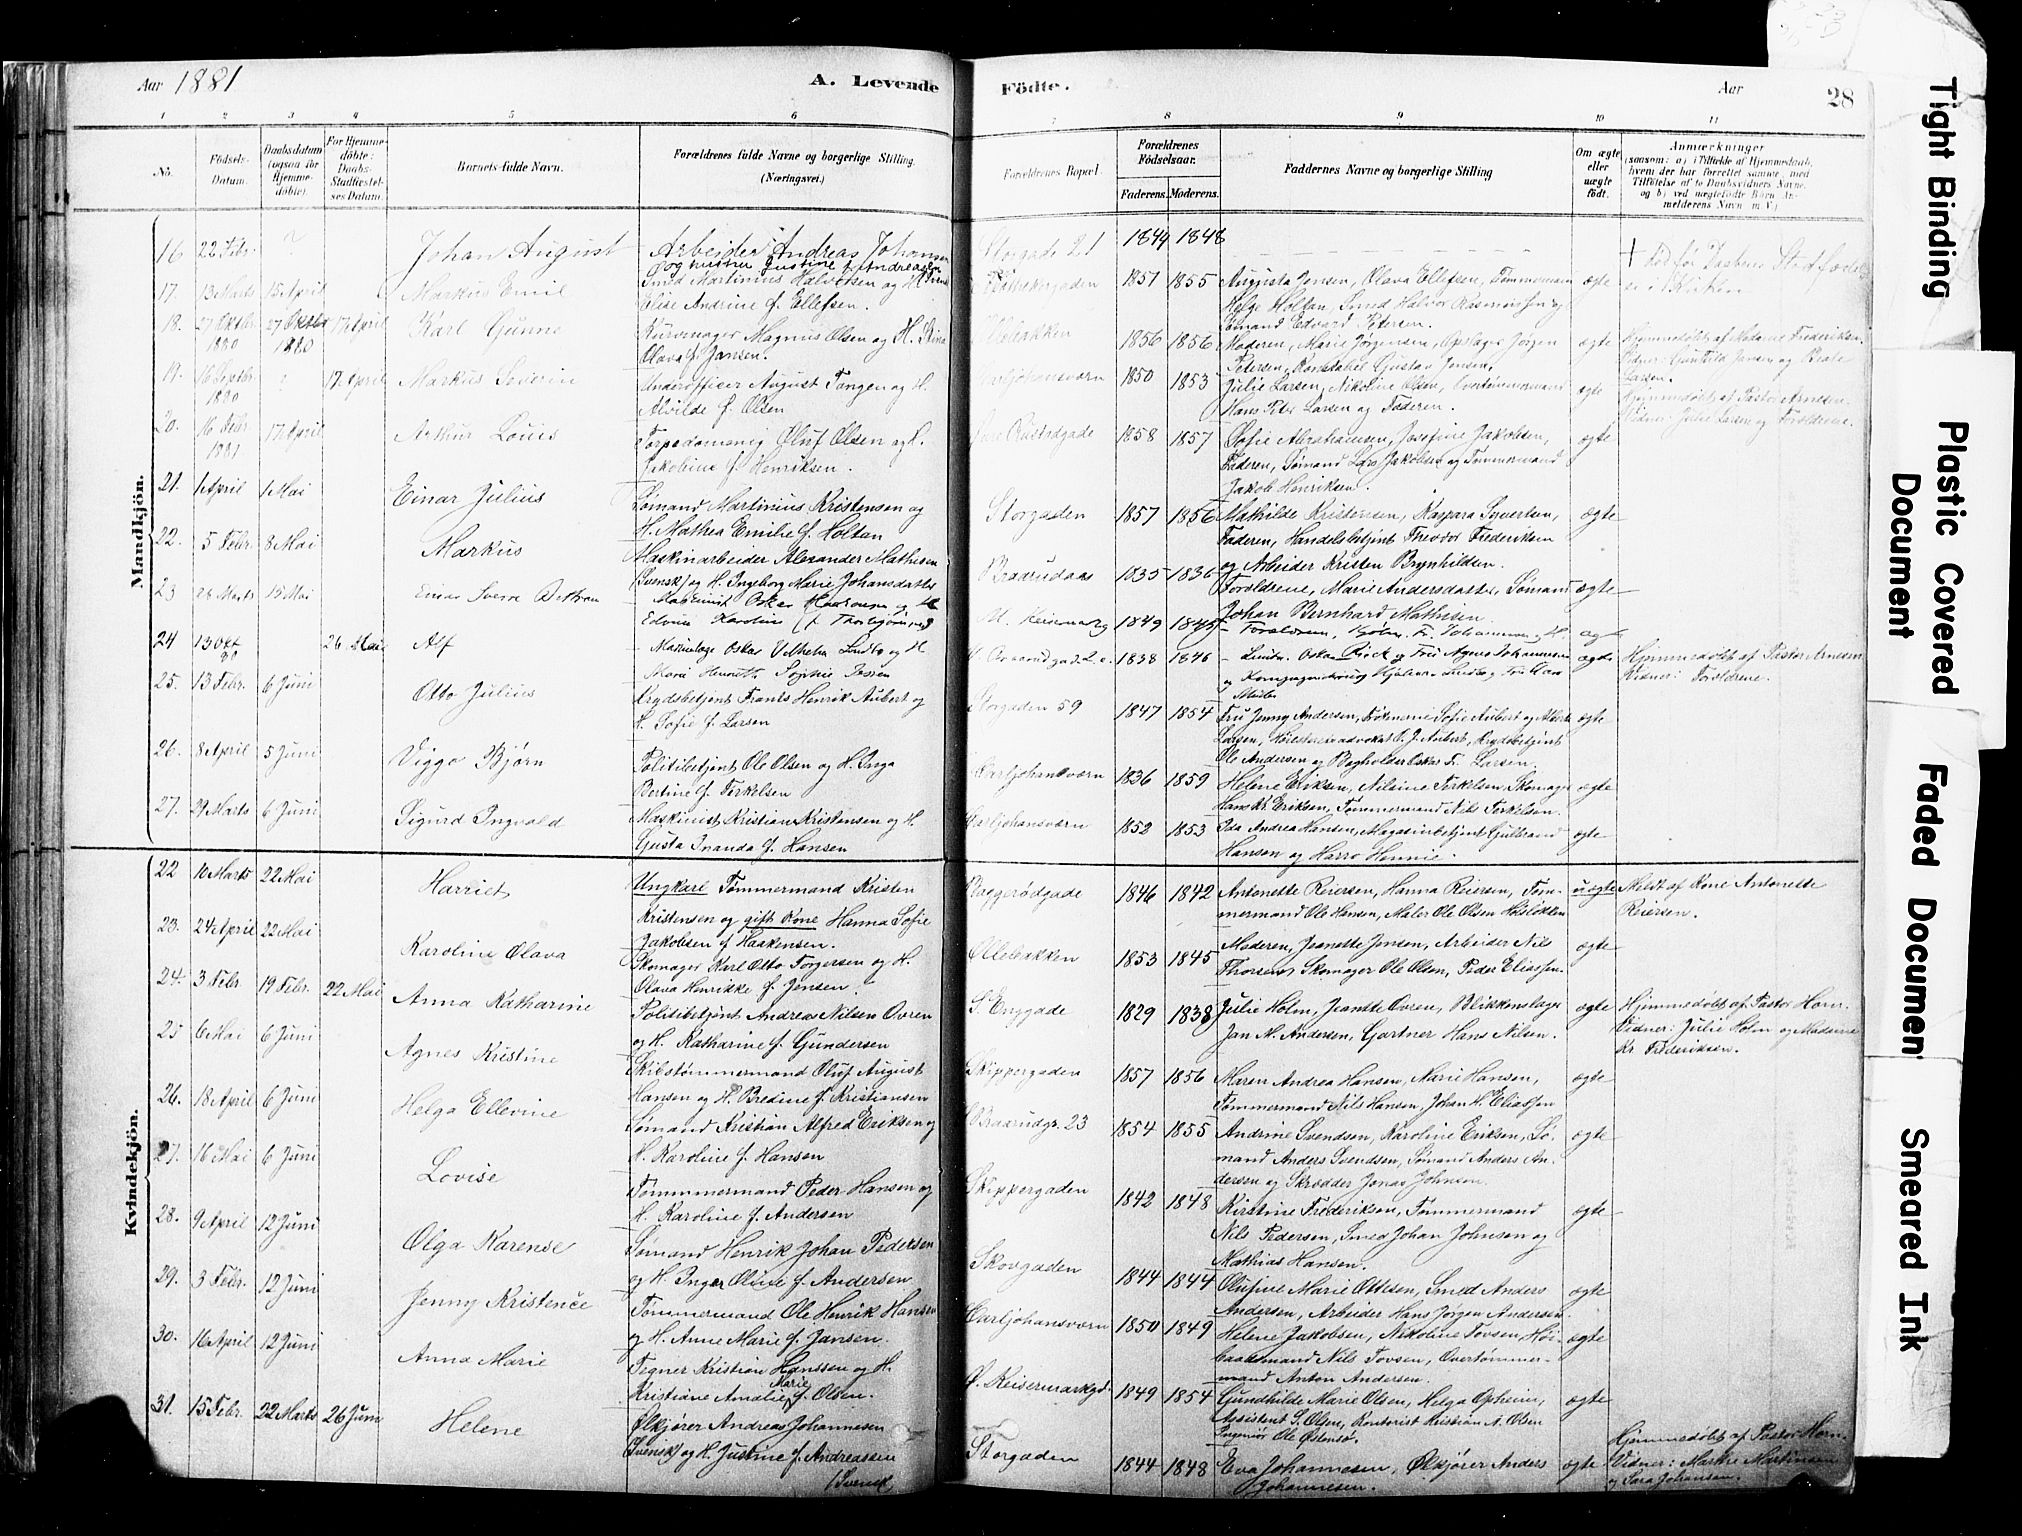 Aar 1881
A. Levende Födte.
Aar
28
1 2 3 4 5 6 7 8 9 10 11
No.
Födsels-Datum.
Daabsdatum (ogsaa for Hjemme-döbte).
For Hjemme-döbte: Daabs-Stadfæstel-ses Datum.
Barnets fulde Navn.
Forældrenes fulde Navne og borgerlige Stilling. (Næringsvei.)
Forældrenes Bopæl.
Forældrenes Födselsaar.
Faderens. Moderens.
Faddernes Navne og borgerlige Stilling
Om ægte eller uægte födt.
Anmærkninger
(saasom: a) i Tilfælde af Hjemmedaab, hvem der har forrettet samme, med Tilföielse af to Daabsvidners Navne, og b) ved uægtefödte Börn An-melderens Navn m. V.)
Mandkjön.
16 22 Febr. ? Johan August Arbeider Andreas Johannesen og hustru Justine f. Andreasen Storgade 21 1844 1848
17. 13 Marts 15 April Markus Emil Smed Martinius Halvorsen og H. Elise Andrine f. Ellefsen 1851 1855 Augusta Jensen, Olava Ellefsen, Tømmermann Helge Holtan, Smed Halvor Rasmussen og Sømand Edvard Petersen. ægte
18. 27 Oktbr 1880 27 Oktbr 1880 17 April Karl Gunne Kurvmager Magnus Olsen og H. Olava f. Jansen. Ollebakken 1856 1856 Moderen, Marie Jørgensen, Opslager Jørgen Petersen, Konstabel Gustav Jensen. ægte Hjemmedøbt af Madame Frederiksen. Vidner: Gunhild Jansen og Beate Larsen.
19. 16 Septbr 1880 ? 17 April Markus Severin Underofficer August Tangen og H. Alvilde f. Olsen Carljohansværn 1850 1853 Julie Larsen, Nikoline Olsen, Overtømmermand Hans Peter Larsen og Faderen. ægte Hjemmedøbt af Pastor Arnesen. Vidner: Julie Larsen og Forældrene.
20. 16 Febr 1881 17 April Arthur Louis Torpedomenig Oluf Olsen og H. Jakobine f. Henriksen. 1858 1857 Sofie Abrahamsen, Josefine Jakobsen, Faderen, Sømand Lars Jakobsen og Tømmermand Jakob Henriksen. ægte
21. 1 April 1 Mai Einar Julius Sømand Martinius Kristensen og H. Mathea Emilie f. Holtan Storgaden 1857 1856 Mathilde Kristensen, Kaspara Syversen, Faderen, Handelsbetjent Theodor Frederiksen og Arbeider Kristen Brynhildsen. ægte
22. 5 Febr. 8 Mai Markus Maskinarbeider Alexander Mathisen (Svensk) og H. Ingeborg Marie Johansdatter Braarudaas 1835 1836 Forældrene, Marie Andersdatter, Sømand Johan Bernhard Mathisen ægte
23 28 Marts 15 Mai Einar Sverre Maskinist Oskar og H. Edvine Karoline 1849 1845 ægte
24 13 Okt 80 26 Mai Alf Oskar Vilhelm Lindbo og H. Marie Henriette Sophie Jessen 1838 1846 ægte Hjemmedøbt af Pastor Arnesen Vidner: Forældrene.
25. 13 Febr. 6 Juni Otto Julius Krydsbetjent Frants Henrik Aubert og H. Sofie f. Larsen Storgaden 59 1847 1854 Fru Jenny Andersen, Frøknerne Sofie Aubert og Larsen, Høiesteretsadvokat Aubert, Krydsbetjent Ole Andersen og Bogholder Oskar Fr. Larsen. ægte
26. 8 April 5 Juni Viggo Bjørn Politibetjent Ole Olsen og H. Inga Bertine f. Terkelsen Carljohansværn 1836 1859 Helene Eriksen, Nilsine Terkelsen, Skomager Hans Kr. Eriksen, Tømmermand Nils Terkelsen. ægte
27. 29 Marts 6 Juni Sigurd Ingvald Maskinist Kristian Kristensen og H. Gusta Inanda f. Hansen Carljohansværn 1852 1853 Ida Andrea Hansen, Magasinbetjent Gulbrand Hansen og Harro Hennie. ægte
Kvindekjön.
22 10 Marts 22 Mai Harriet Ungkarl Tømmermand Kristen Kristensen og gift Kone Hanna Sofie Jakobsen f. Haakensen. Baggerødgade 1846 1842 Antonette Reiersen, Hanna Reiersen, Tømmermand Ole Hansen, Maler Ole Olsen Holsløkken uægte Meldt af Kone Antonette Reiersen.
23. 24 April 22 Mai Karoline Olava Skomager Karl Otto Torgersen og H. Olava Henrikke f. Jensen. Ollebakken 1853 1845 Moderen, Jeanette Jensen, Arbeider Nils Thorsen, Skomager Ole Olsen, Peder Eliassen. ægte
24. 3 Febr. 19 Febr. 22 Mai Anna Katharine Politibetjent Andreas Nilsen Ovren og H. Katharine f. Gundersen S. Enggade 1829 1838 Julie Holm, Jeanette Ovren, Blikkenslager Jan M. Andersen, Gartner Hans Nilsen. ægte Hjemmedøbt af Pastor Horn. Vidner: Julie Holm og Madame Kr. Frederiksen.
25 6 Mai 6 Juni Agnes Kristine Skibstømmermand Oluf August Hansen og H. Bredine f. Kristiansen Skippergaden 1857 1856 Maren Andrea Hansen, Marie Hansen, Tømmermand Nils Hansen, Johan H. Eliassen ægte
26. 18 April 6 Juni Helga Ellevine Sømand Kristian Alfred Eriksen og H. Karoline f. Hansen Braarudgr. 23 1854 1855 Andrine Svendsen, Karoline Eriksen, Sømand Anders Svendsen, Sømand Anders Andersen og Skrædder Jonas Johnsen. ægte
27. 16 Mai 6 Juni Lovise Tømmermand Peder Hansen og H. Karoline f. Andersen Skippergaden 1842 1848 Kirstine Frederiksen, Tømmermand Nils Pedersen, Smed Johan Johnsen og Mathias Hansen. ægte
28. 9 April 12 Juni Olga Karense Sømand Henrik Johan Pedersen og H. Inger Oline f. Andersen Skovgaden 1844 1844 Olufine Marie Ottesen, Smed Anders Andersen, Arbeider Hans Jørgen Andersen. ægte
29. 3 Febr. 12 Juni Jenny Kristence Tømmermand Ole Henrik Hansen og H. Anne Marie f. Jansen. Carljohansværn 1850 1849 Helene Jakobsen, Nikoline Tovsen, Høibaadsmand Nils Tovsen, Overtømmermand Anton Andersen. ægte
30. 16 April 12 Juni Anna Marie Tegner Kristian Hanssen og H. Kristiane Amalie Marie f. Olsen. Ø. Keisermarkgd. 1849 1854 Gundhilde Marie Olsen, Helga Opheim, Assistent S. Olsen, Kontorist Kristian A. Olsen Ingeniør Ole Østensø. ægte
31. 15 Febr. 22 Marts 26 Juni Helene Ølkjører Andreas Johannesen (Svensk) og H. Justine f. Andreassen (Svensk) Storgaden 1844 1848 Eva Johannesen, Ølkjører Anders Johannesen. ægte Hjemmedøbt af Pastor Horn. Vidner: Marthe Martinsen og Sara Johansen.
Tight Binding
Plastic Covered Document
Faded Document
Smeared Ink